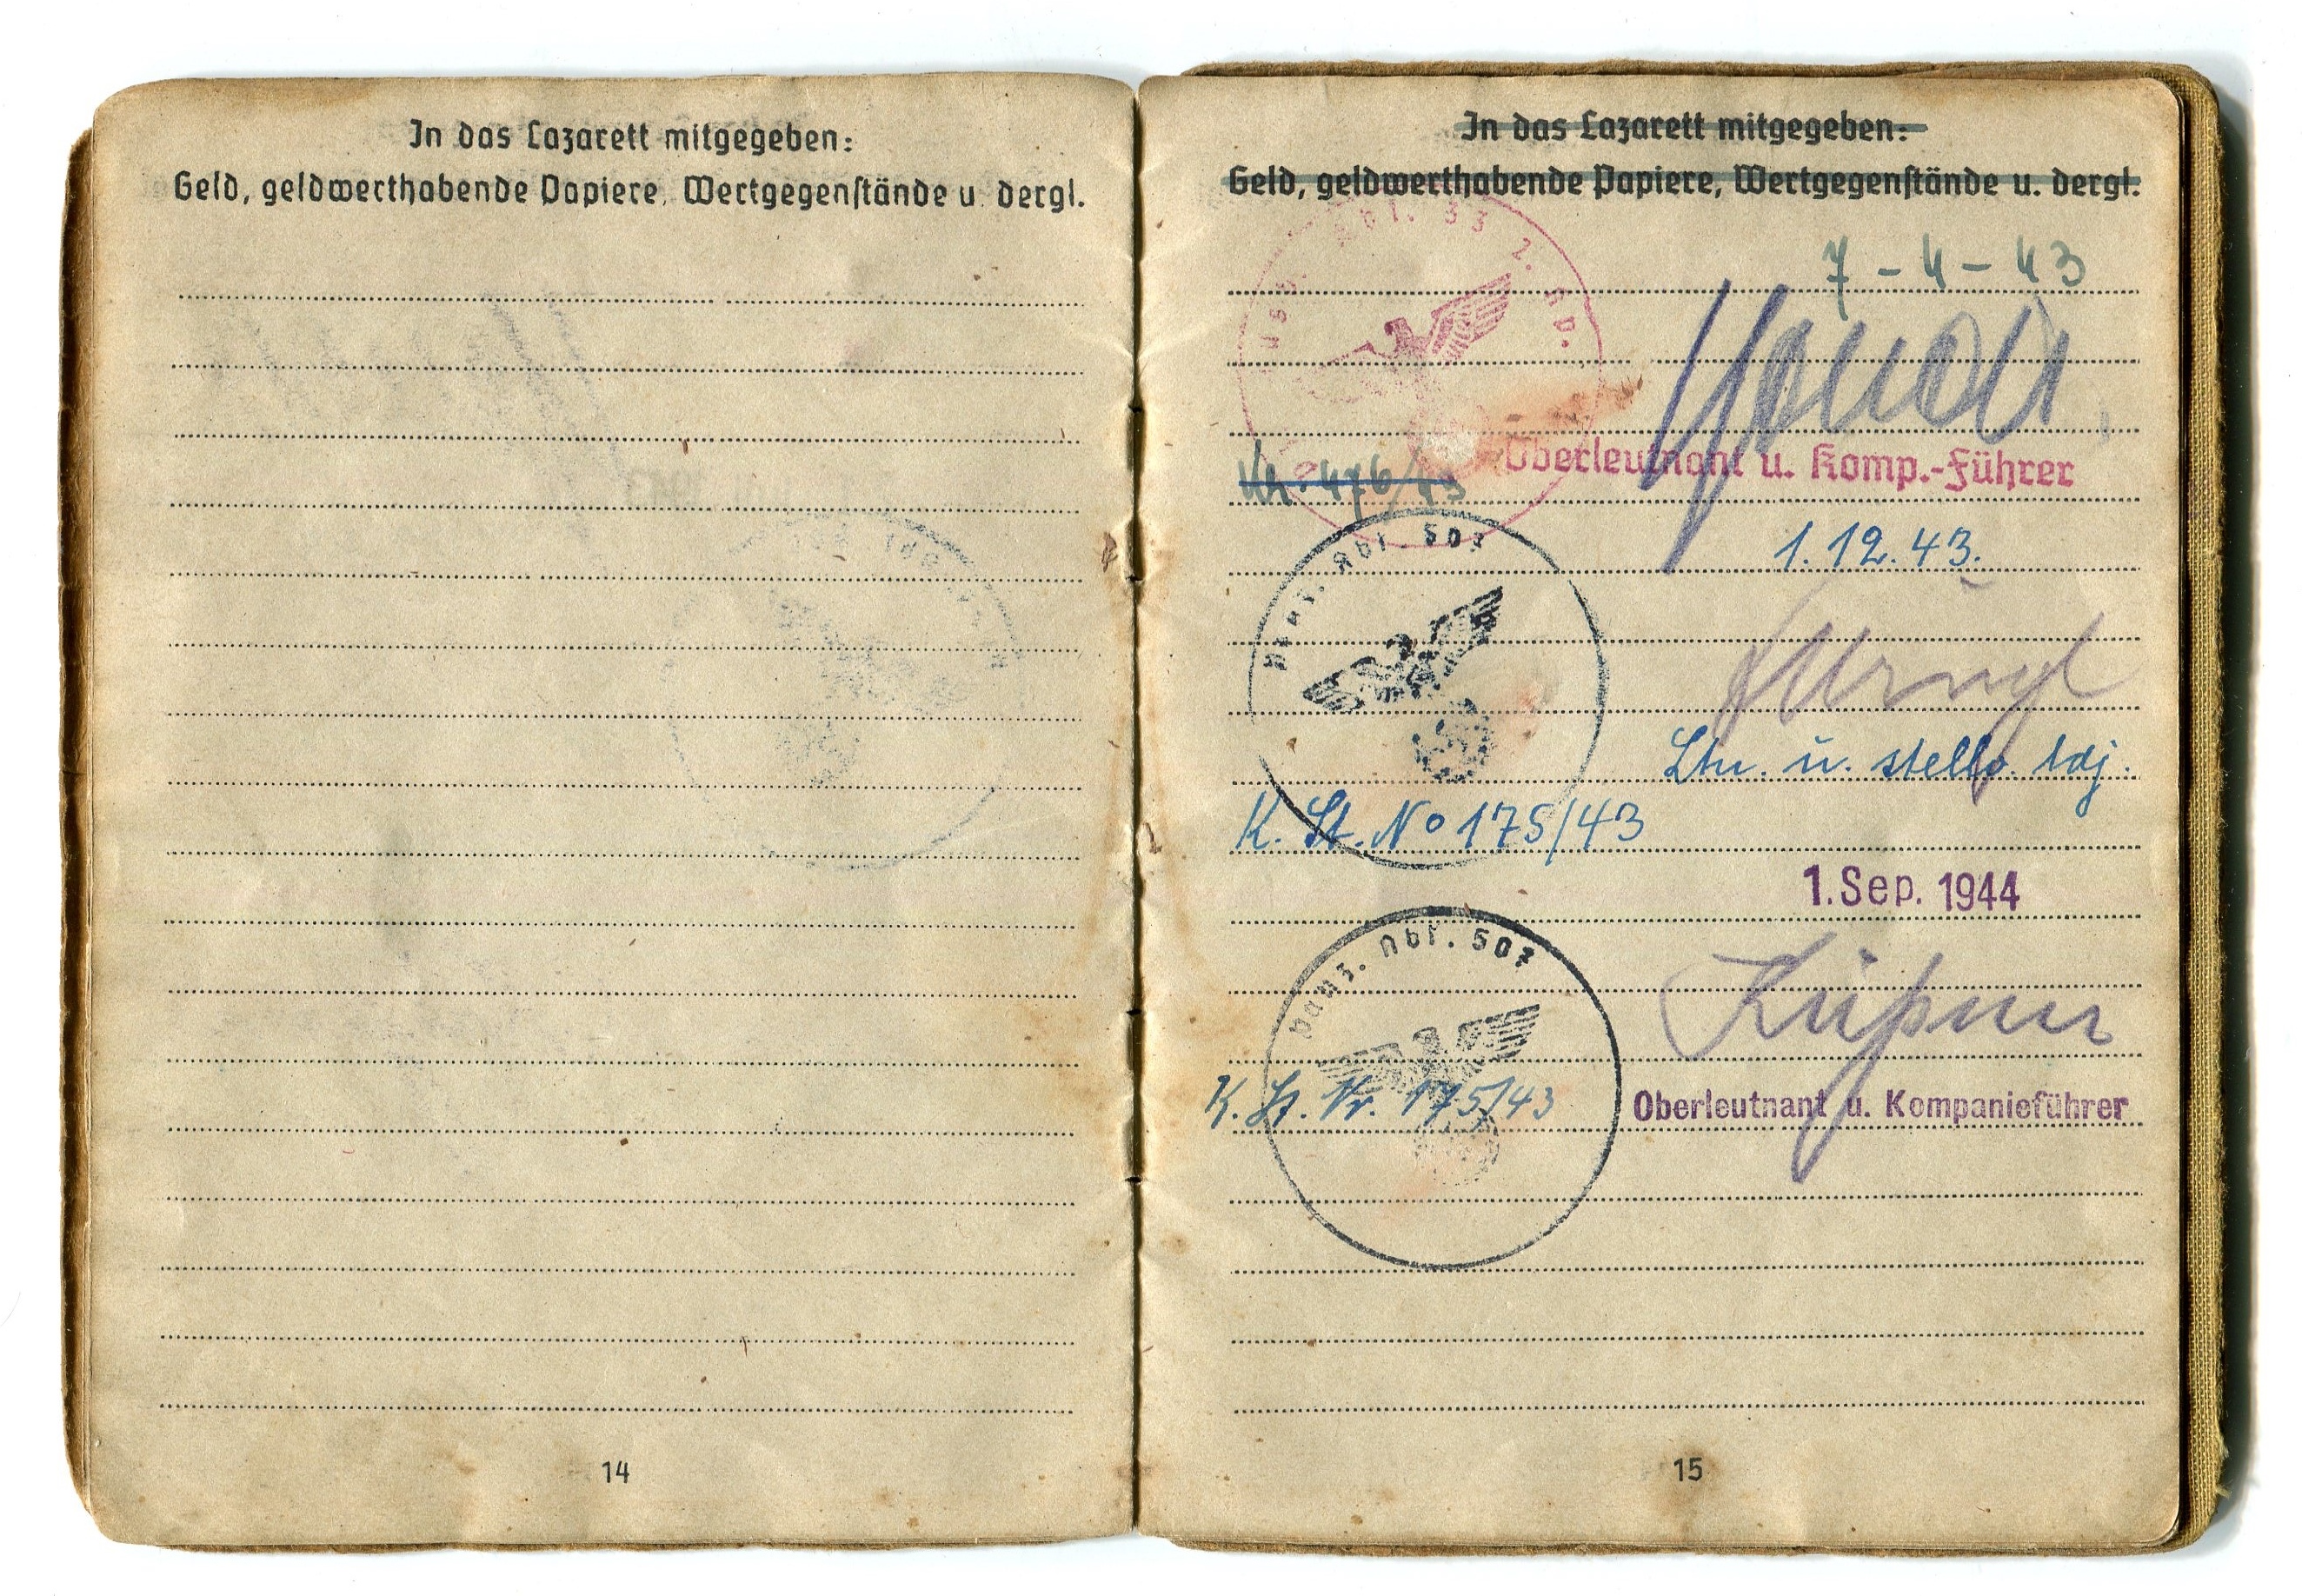 In das Lazarett mitgegeben:
Geld, geldwerthabende Papiere, Wertgegenstände u. dergl.
14
In das Lazarett mitgegeben:
Geld, geldwerthabende Papiere, Wertgegenstände u. dergl.
Abt. 33 2. Kp.
7-4-43
Oberleutnant u. Komp.-Führer
Nr. 476/43
Panz. Abt. 503
1.12.43.
Ltn. u. stellv. Adj.
K. St. No 175/43
1. Sep. 1944
Panz. Abt. 503
K. St. Nr. 175/43
Oberleutnant u. Kompanieführer
15